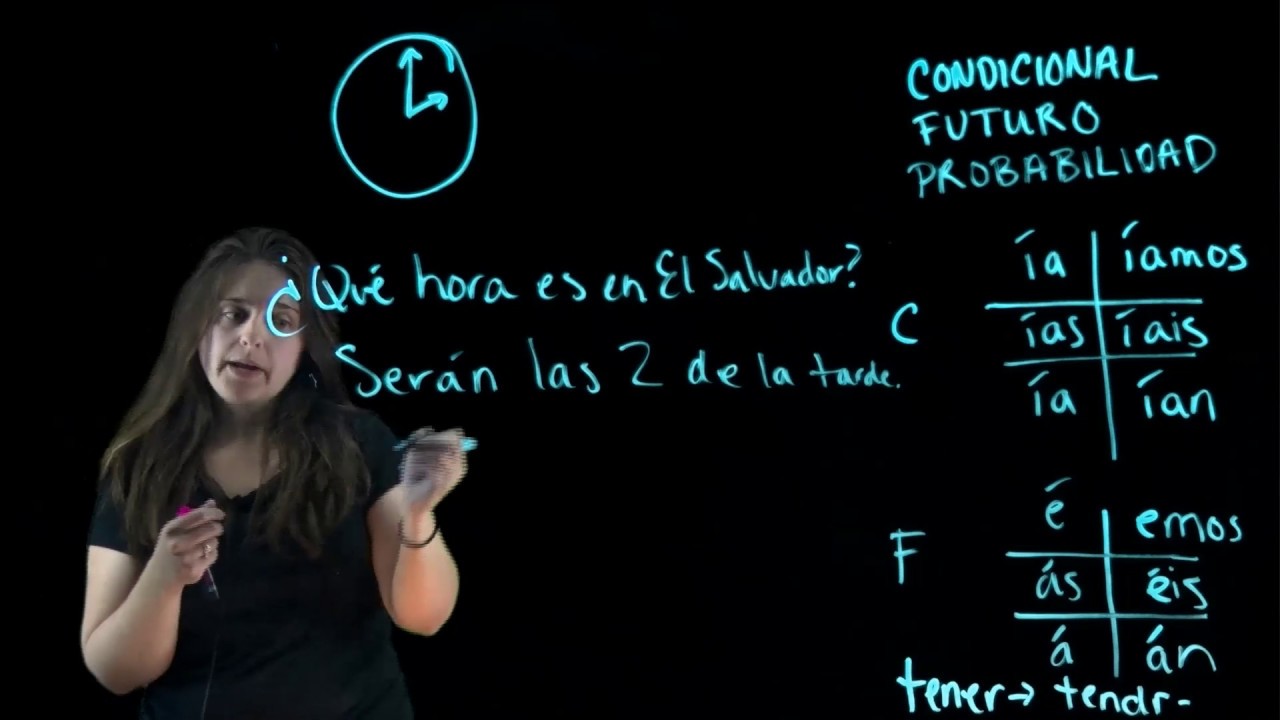 CONDICIONAL
FUTURO
PROBABILIDAD
¿Qué hora es en El Salvador?
Serán las 2 de la tarde.
C
ía íamos
ías íais
ía ían
F
é emos
ás éis
á án
tener → tendr-